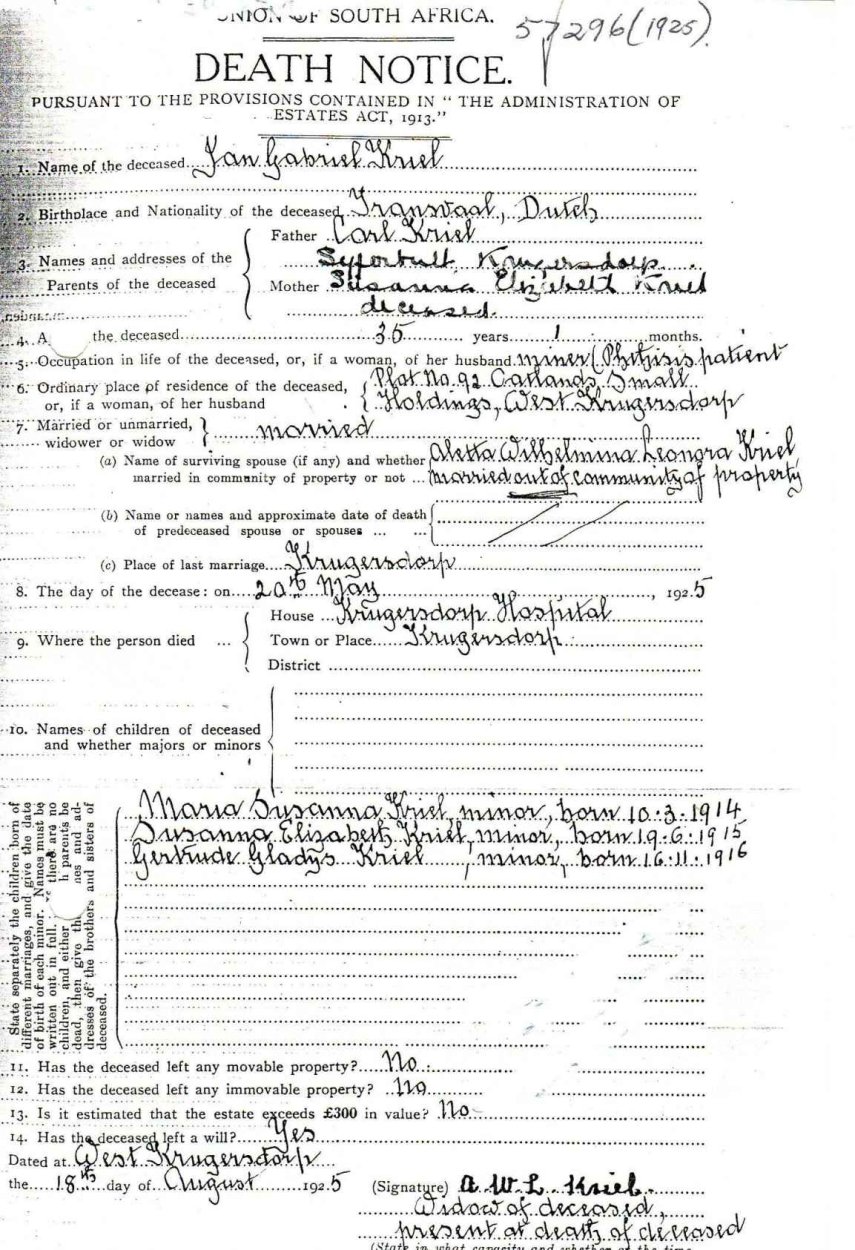 UNION OF SOUTH AFRICA.
57296(1925).
DEATH NOTICE.
PURSUANT TO THE PROVISIONS CONTAINED IN “ THE ADMINISTRATION OF
ESTATES ACT, 1913.”
1. Name of the deceased Jan Gabriel Kriel
2. Birthplace and Nationality of the deceased Transvaal, Dutch
Father Carl Kriel
3. Names and addresses of the Syferbult Krugersdorp.
Parents of the deceased Mother Susanna Elizabeth Kriel
deceased.
4. A the deceased 35 years 1 months.
5. Occupation in life of the deceased, or, if a woman, of her husband miner (Phthisis patient
6. Ordinary place of residence of the deceased, Plot No. 92 Oatlands Small
or, if a woman, of her husband Holdings, West Krugersdorp
7. Married or unmarried, married
widower or widow
(a) Name of surviving spouse (if any) and whether Aletta Wilhelmina Leonora Kriel
married in community of property or not ... married out of community of property
(b) Name or names and approximate date of death
of predeceased spouse or spouses ... ...
(c) Place of last marriage Krugersdorp
8. The day of the decease: on 20th May, 1925
House Krugersdorp Hospital
9. Where the person died ... Town or Place Krugersdorp
District
10. Names of children of deceased
and whether majors or minors
State separately the children born of
different marriages, and give the date
of birth of each minor. Names must be
written out in full. there are no
children, and either h parents be
dead, then give th nes and ad-
dresses of the brothers and sisters of
deceased.
Maria Susanna Kriel, minor, born 10.3.1914
Susanna Elizabeth Kriel, minor, born 19.6.1915
Gertrude Gladys Kriel, minor, born 16.11.1916
11. Has the deceased left any movable property? No.
12. Has the deceased left any immovable property? no
13. Is it estimated that the estate exceeds £300 in value? No
14. Has the deceased left a will? Yes
Dated at West Krugersdorp
the 18th day of August 1925 (Signature) A. W. L. Kriel.
Widow of deceased,
present at death of deceased
(State in what capacity and whether at the time